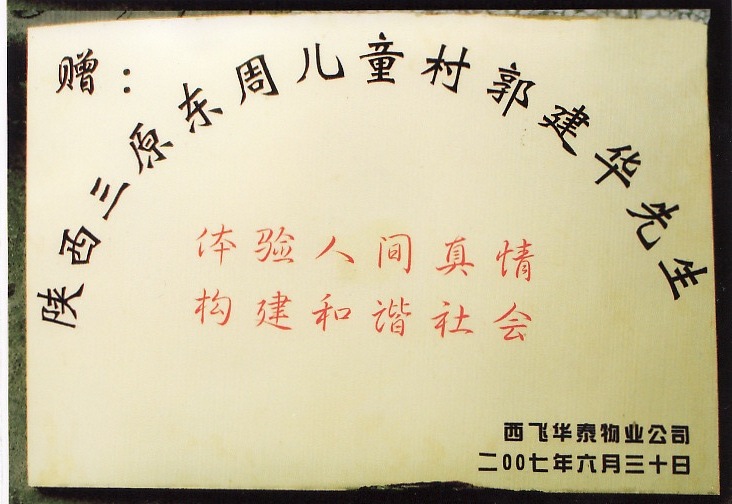 赠：
陕西三原东周儿童村郭建华先生
体验人间真情
构建和谐社会
西飞华泰物业公司
二00七年六月三十日